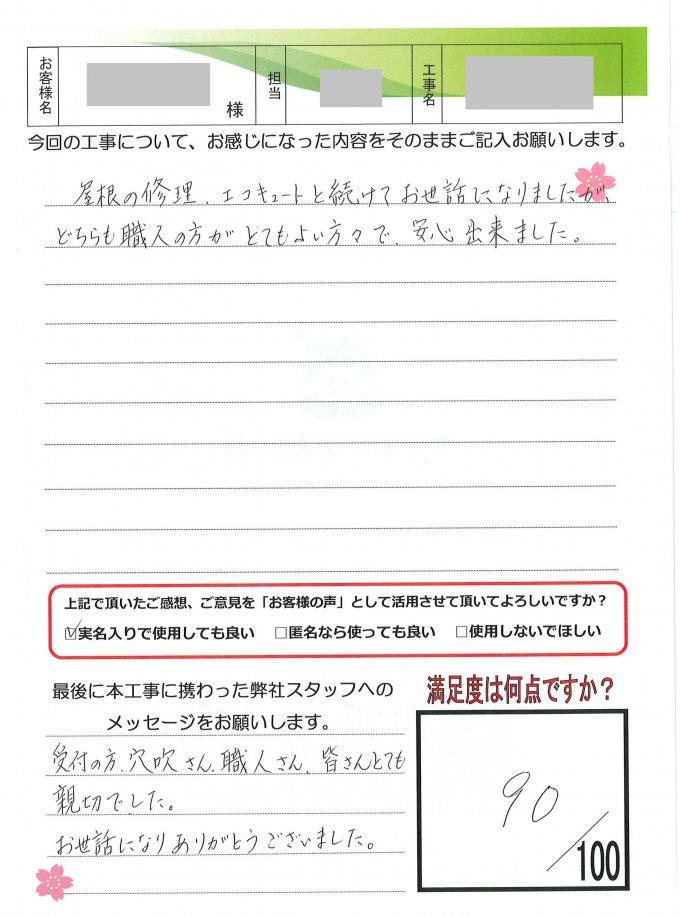 お客様名 様 担当 工事名
今回の工事について、お感じになった内容をそのままご記入お願いします。
屋根の修理、エコキュートと続けてお世話になりましたが、
どちらも職人の方がとてもよい方々で、安心出来ました。
上記で頂いたご感想、ご意見を「お客様の声」として活用させて頂いてよろしいですか？
☑実名入りで使用しても良い □匿名なら使っても良い □使用しないでほしい
最後に本工事に携わった弊社スタッフへの
メッセージをお願いします。
受付の方、穴吹さん、職人さん、皆さんとても
親切でした。
お世話になりありがとうございました。
満足度は何点ですか？
90
/100